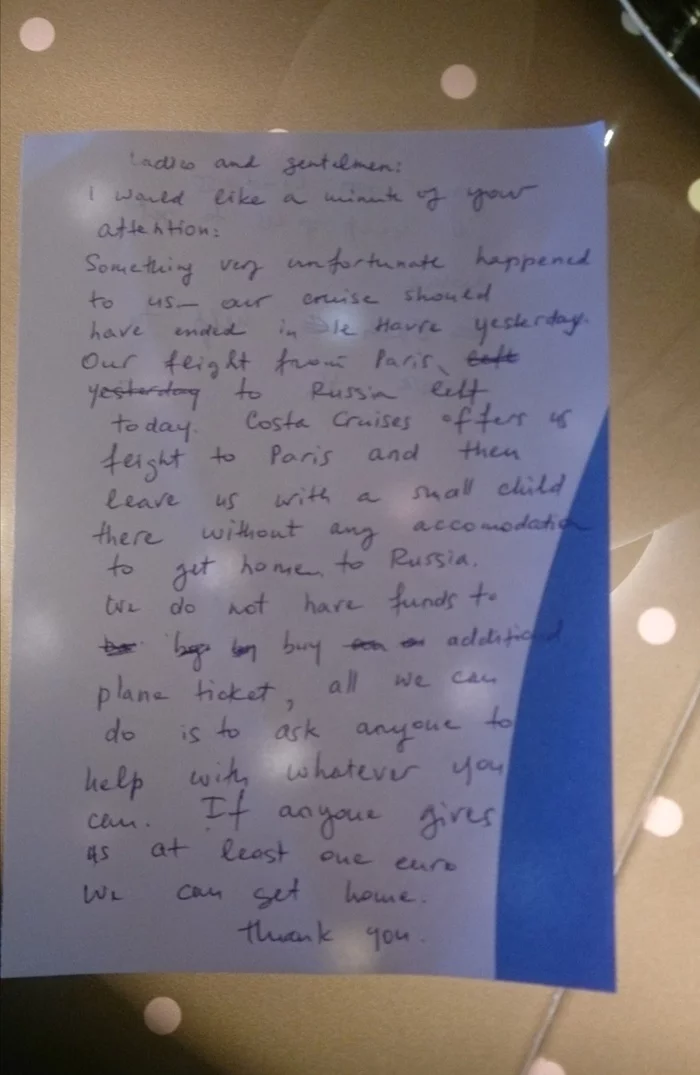 Ladies and gentelmen:
I would like a minute of your
attention:
Something very unfortunate happened
to us — our cruise should
have ended in le Havre yesterday.
Our fleight from Paris, left
yesterday to Russia left
today. Costa Cruises offers us
fleight to Paris and then
leave us with a small child
there without any accomodation
to get home to Russia.
We do not have funds to
buy additional
plane ticket, all we can
do is to ask anyone to
help with whatever you
can. If anyone gives
us at least one euro
we can get home.
Thank you.